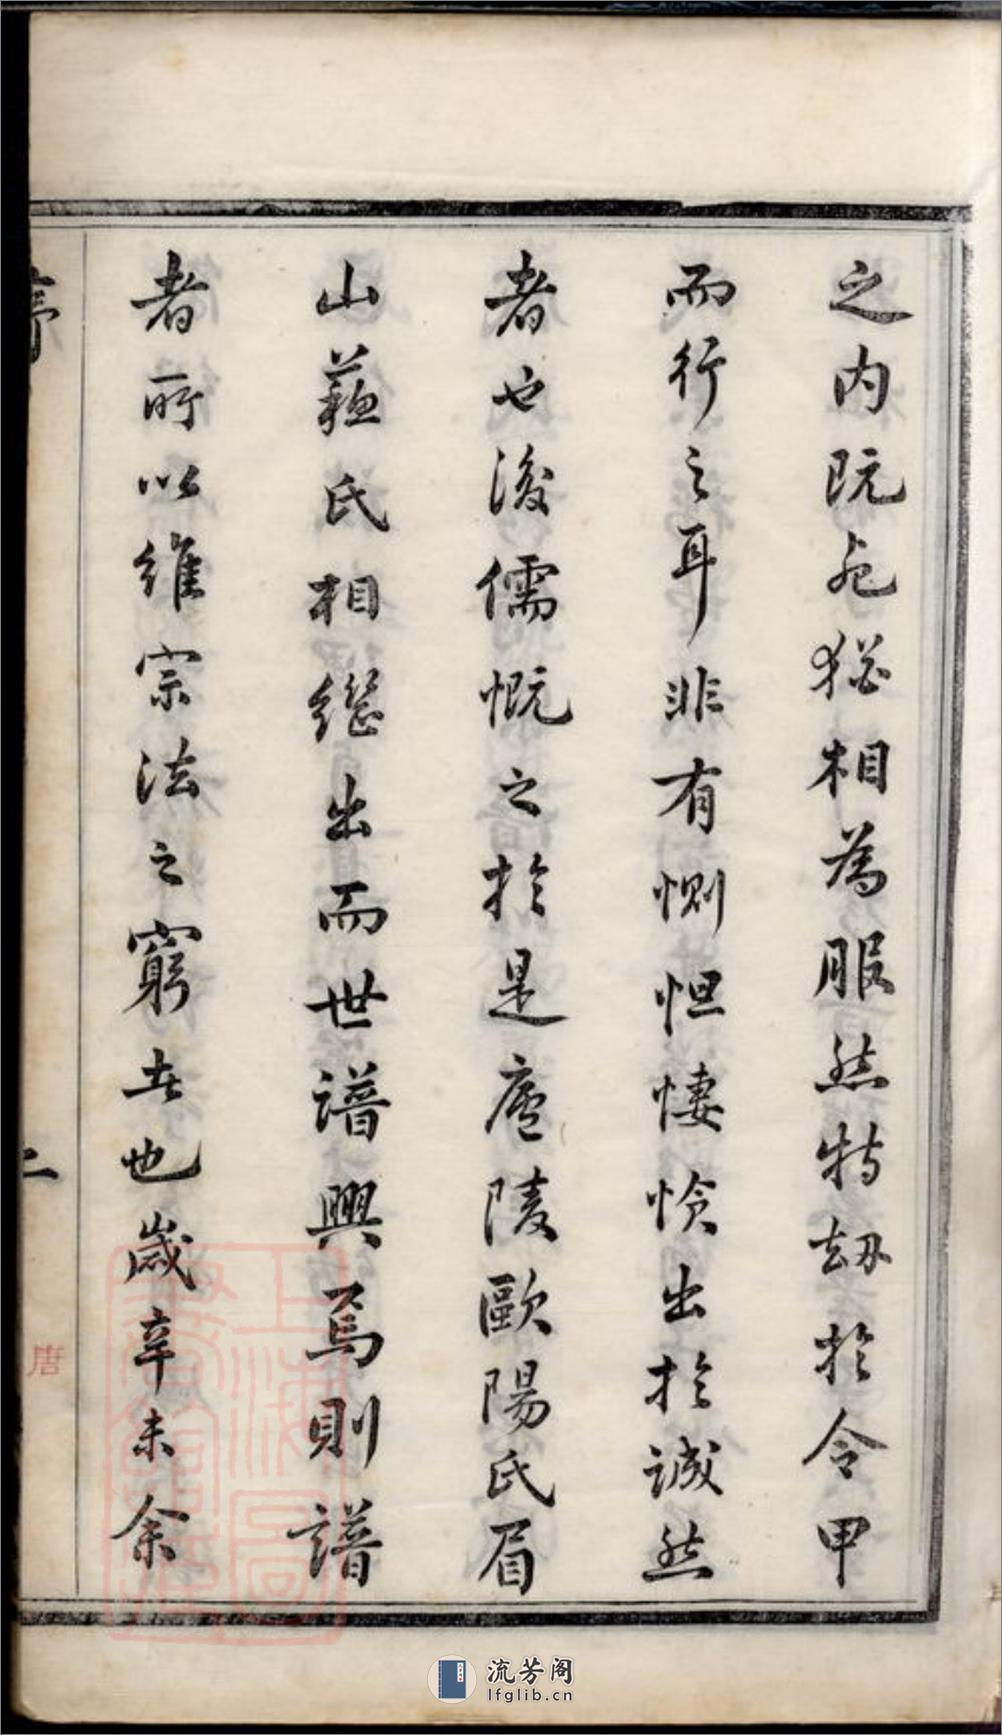 之内阮免猶相為服然特刼於令甲
而行之耳非有惻怛悽惔出於誠然
者也後儒慨之於是廬陵歐陽氏眉
山蘓氏相繼出而世譜興焉則譜
者所以維宗法之窮者也歲辛未余
二
唐
上海圖書館藏
流芳阁
lfglib.cn